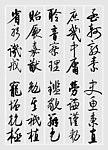 孟軻敦素史魚秉直
庶幾中庸勞謙謹敕
聆音察理鑑貌辨色
貽厥嘉猷勉其祗植
省躬譏誡寵增抗極